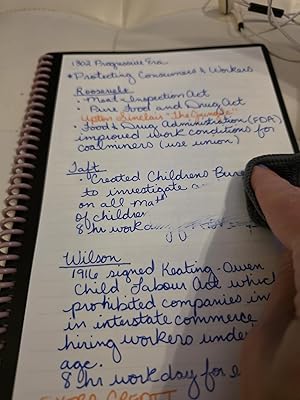 1302 Progressive Era
• Protecting Consumers & Workers
Roosevelt
• Meat Inspection Act
• Pure Food and Drug Act
Upton Sinclair "The Jungle"
• Food & Drug Administration (FDA)
improved work conditions for
coalminers (use union)
Taft
• Created Childrens Bure
to investigate a
on all mat
of children
8 hr workday
Wilson
1916 signed Keating-Owen
Child Labour Act which
prohibited companies in
in interstate commerce
hiring workers unde
age.
8 hr workday for
EXTRA CREDIT